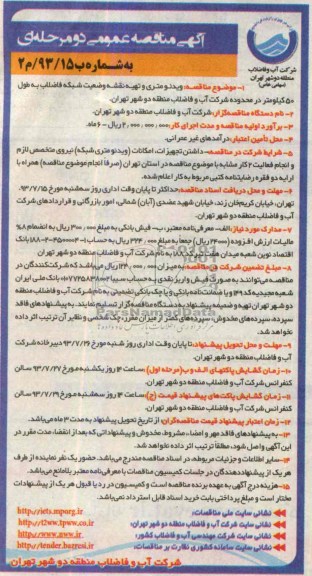 آگهی مناقصه عمومی دو مرحله‌ای
به شماره ب/۹۳/۱۵/م۲
شرکت آب و فاضلاب
منطقه دو شهر تهران
(سهامی خاص)
۱- موضوع مناقصه: ویدئو متری و تهیه نقشه وضعیت شبکه فاضلاب به طول
۵۰ کیلومتر در محدوده شرکت آب و فاضلاب منطقه دو شهر تهران.
۲- نام دستگاه مناقصه‌گزار: شرکت آب و فاضلاب منطقه دو شهر تهران.
۳- برآورد اولیه مناقصه و مدت اجرای کار: ۲,۰۰۰,۰۰۰,۰۰۰ ریال - ۶ ماه.
۴- محل تأمین اعتبار: درآمدهای غیر عمرانی.
۵- شرایط شرکت در مناقصه: داشتن تجهیزات، امکانات (ویدئو متری شبکه) نیروی متخصص لازم
و انجام فعالیت ۲ کار مشابه با موضوع مناقصه در استان تهران (صرفاً انجام موضوع مناقصه) همراه با
ارایه دو فقره رضایتنامه کتبی مربوط به کار اعلام شده.
۶- مهلت و محل دریافت اسناد مناقصه: حداکثر تا پایان وقت اداری روز سه‌شنبه مورخ ۹۳/۷/۱۵،
تهران، خیابان کریم‌خان زند، خیابان شهید عضدی (آبان) شمالی، امور بازرگانی و قراردادهای شرکت
آب و فاضلاب منطقه دو شهر تهران.
۷- مدارک مورد نیاز: الف- معرفی‌نامه معتبر، ب- فیش بانکی به مبلغ ۳۰۰,۰۰۰ ریال به انضمام ۸%
مالیات ارزش افزوده (۲۴,۰۰۰ ریال) جمعاً به مبلغ ۳۲۴,۰۰۰ ریال به حساب
اقتصاد نوین شعبه میدان هفت تیر کد ۱۸۸ به نام شرکت آب و فاضلاب منطقه دو شهر تهران.
۸- مبلغ تضمین شرکت در مناقصه: به میزان ریال می‌باشد که شرکت‌کنندگان در
مناقصه می‌توانند به صورت فیش واریز نقدی به حساب سیبا بانک ملی ایران
شعبه مجیدیه کد و یا ضمانت‌نامه بانکی و یا چک بانکی تضمینی به نام شرکت آب و فاضلاب منطقه
دو شهر تهران تهیه و ضمیمه پیشنهاد به دستگاه مناقصه‌گزار تسلیم نمایند. به پیشنهادهای فاقد
سپرده، سپرده‌های مخدوش، سپرده‌های کمتر از میزان مقرر، چک شخصی و نظایر آن ترتیب اثر داده
نخواهد شد.
۹- مهلت و محل تحویل پیشنهاد: تا پایان وقت اداری روز شنبه مورخ ۹۳/۷/۲۶ دبیرخانه شرکت
آب و فاضلاب منطقه دو شهر تهران.
۱۰- زمان گشایش پاکتهای الف و ب (مرحله اول): ساعت ۱۴ روز یکشنبه مورخ ۹۳/۷/۲۷ سالن
کنفرانس شرکت آب و فاضلاب منطقه دو شهر تهران.
۱۱- زمان گشایش پاکت‌های پیشنهاد قیمت (ج): ساعت ۱۴ روز سه‌شنبه مورخ ۹۳/۷/۲۹ سالن
کنفرانس شرکت آب و فاضلاب منطقه دو شهر تهران.
۱۲- زمان اعتبار پیشنهاد قیمت مناقصه‌گران: از تاریخ تحویل پیشنهاد به مدت ۳ ماه می‌باشد.
۱۳- به پیشنهادهای فاقد مهر و امضاء، مشروط، مخدوش و پیشنهاداتی که بعد از انقضاء مدت مقرر در
این آگهی واصل شود، مطلقاً ترتیب اثر داده نخواهد شد.
۱۴- سایر اطلاعات و جزئیات مربوطه، در اسناد مناقصه مندرج می‌باشد. حضور یک نفر نماینده از طرف
هر یک از پیشنهاددهندگان در جلسات کمیسیون مناقصات با معرفی‌نامه معتبر بلامانع می‌باشد.
۱۵- هزینه درج آگهی به عهده برنده مناقصه است و کمیسیون در رد یا قبول هر یک از پیشنهادات
مختار است و مبلغ پرداختی بابت خرید اسناد قابل استرداد نمی‌باشد.
نشانی سایت ملی مناقصات: http://iets.mporg.ir
نشانی سایت شرکت آب و فاضلاب منطقه دو شهر تهران: http://t2ww.tpww.co.ir
نشانی سایت شرکت مهندسی آب و فاضلاب کشور: http://www.nww.ir
نشانی سایت سامانه کشوری نظارت بر مناقصات: http://tender.bazresi.ir
شرکت آب و فاضلاب منطقه دو شهر تهران
ParsNamadData